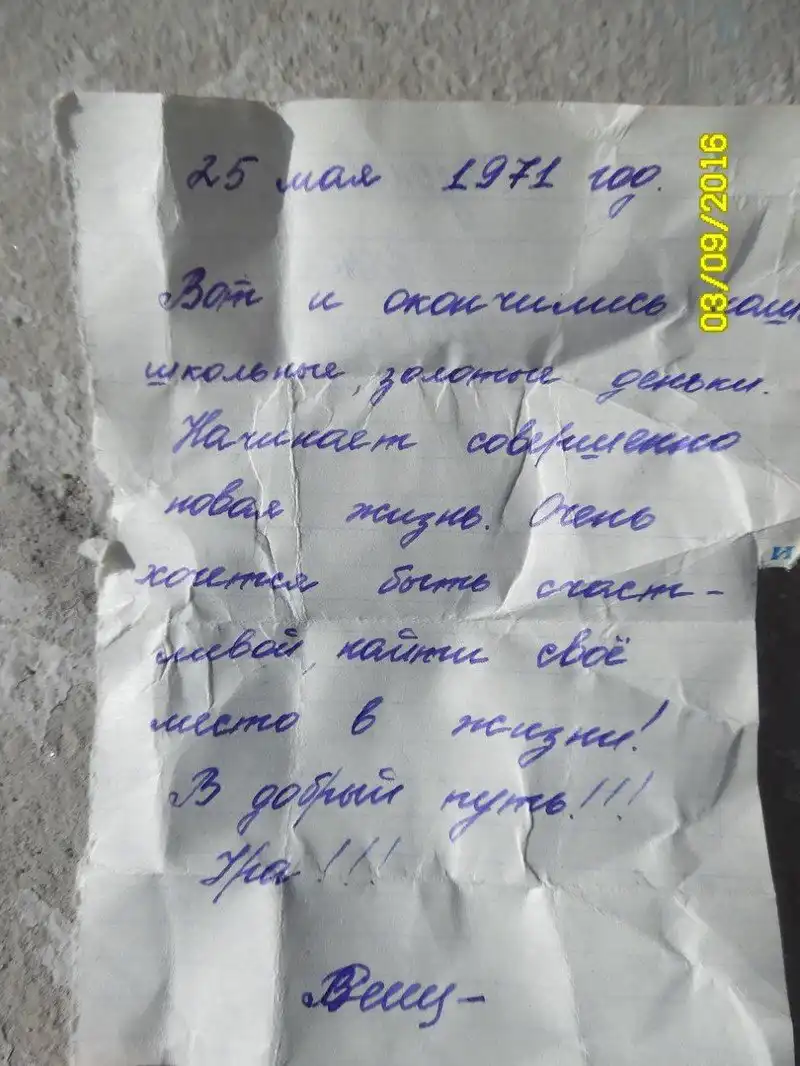 25 мая 1971 год.
Вот и окончились
школьные, золотые деньки.
Начинает совершенно
новая жизнь. Очень
хочется быть счаст-
ливой, найти своё
место в жизни!
В добрый путь!!!
Ура!!!
03/09/2016
и